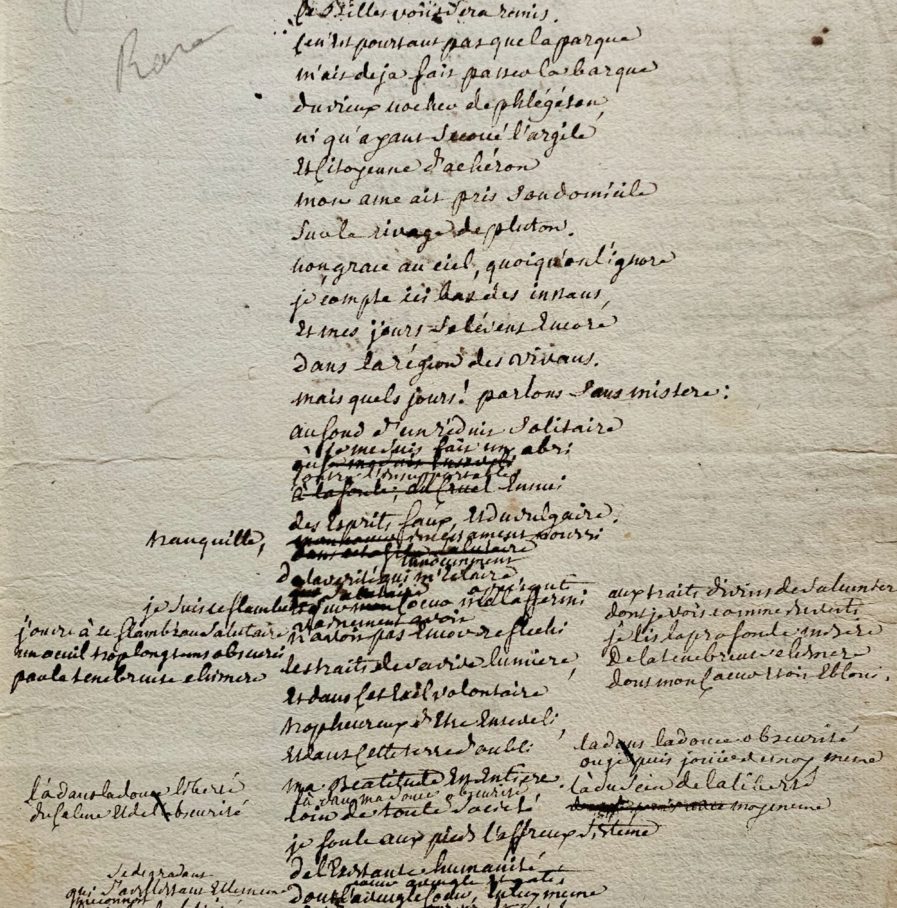 Rare
vous sera remis.
Ce n'est pourtant pas que la parque
m'ait deja fait passer la barque
du vieux nocher de phlégéton
ni qu'ayant secoué l'argile
Et Citoyenne d'achéron
mon ame ait pris son domicile
sur le rivage de pluton.
non, grace au ciel, quoiqu'on l'ignore
je compte ici bas des instans,
Et mes jours se lévent Encore
dans la région des vivans.
mais quels jours! parlons sans mistere:
au fond d'un réduit solitaire
je me suis fait un abri
à la foule, au Cruel Ennui
des Esprits faux, Et du vulgaire.
tranquille,
de la verité qui m'éclaire
je suis ce flambeau
j'ouvre à ce flambeau salutaire
un oeuil trop longtems obscurci
par la tenebreuse chimere
n'avoit pas Encore reflechi
les traits de sa vive lumiere,
Et dans cet Exil volontaire
trop heureux d'Etre Enseveli,
Et dans cette terre d'oubli
aux traits divins de sa lumiere
dont je vois comme
je lis la profonde misere
de la tenebreuse chimere
dont mon Coeur étoit Ebloui.
ma Beatitude Est Entiere
là dans ma douce obscurité
loin de toute société
là dans la douce obscurité
ou je puis jouir de moy meme
là du sein de la liberté
moy meme
là dans la douce liberté
du Calme Et de l'obscurité
je foule aux pieds l'affreux sistême
de l'Existante humanité
dont l'aveugle
se degradant
qui s'avilissant Elle meme